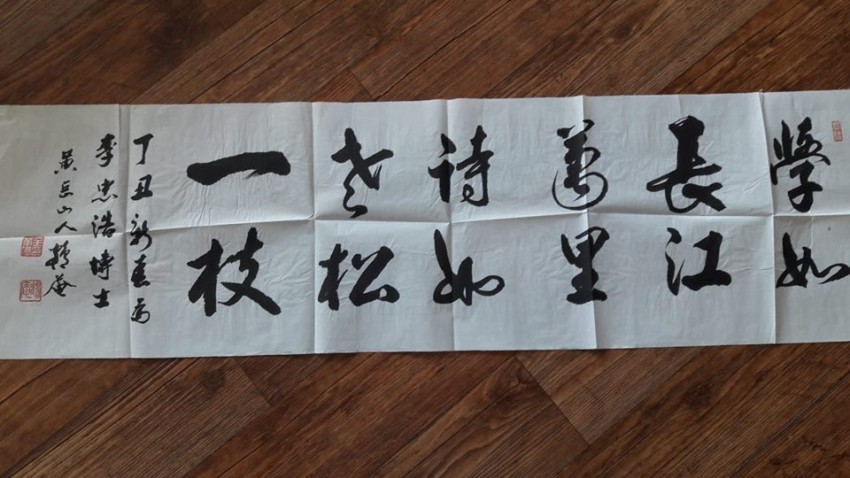 學如
長江
萬里
詩如
老松
一枝
丁丑新春為
李忠浩博士
黄岳山人 庵